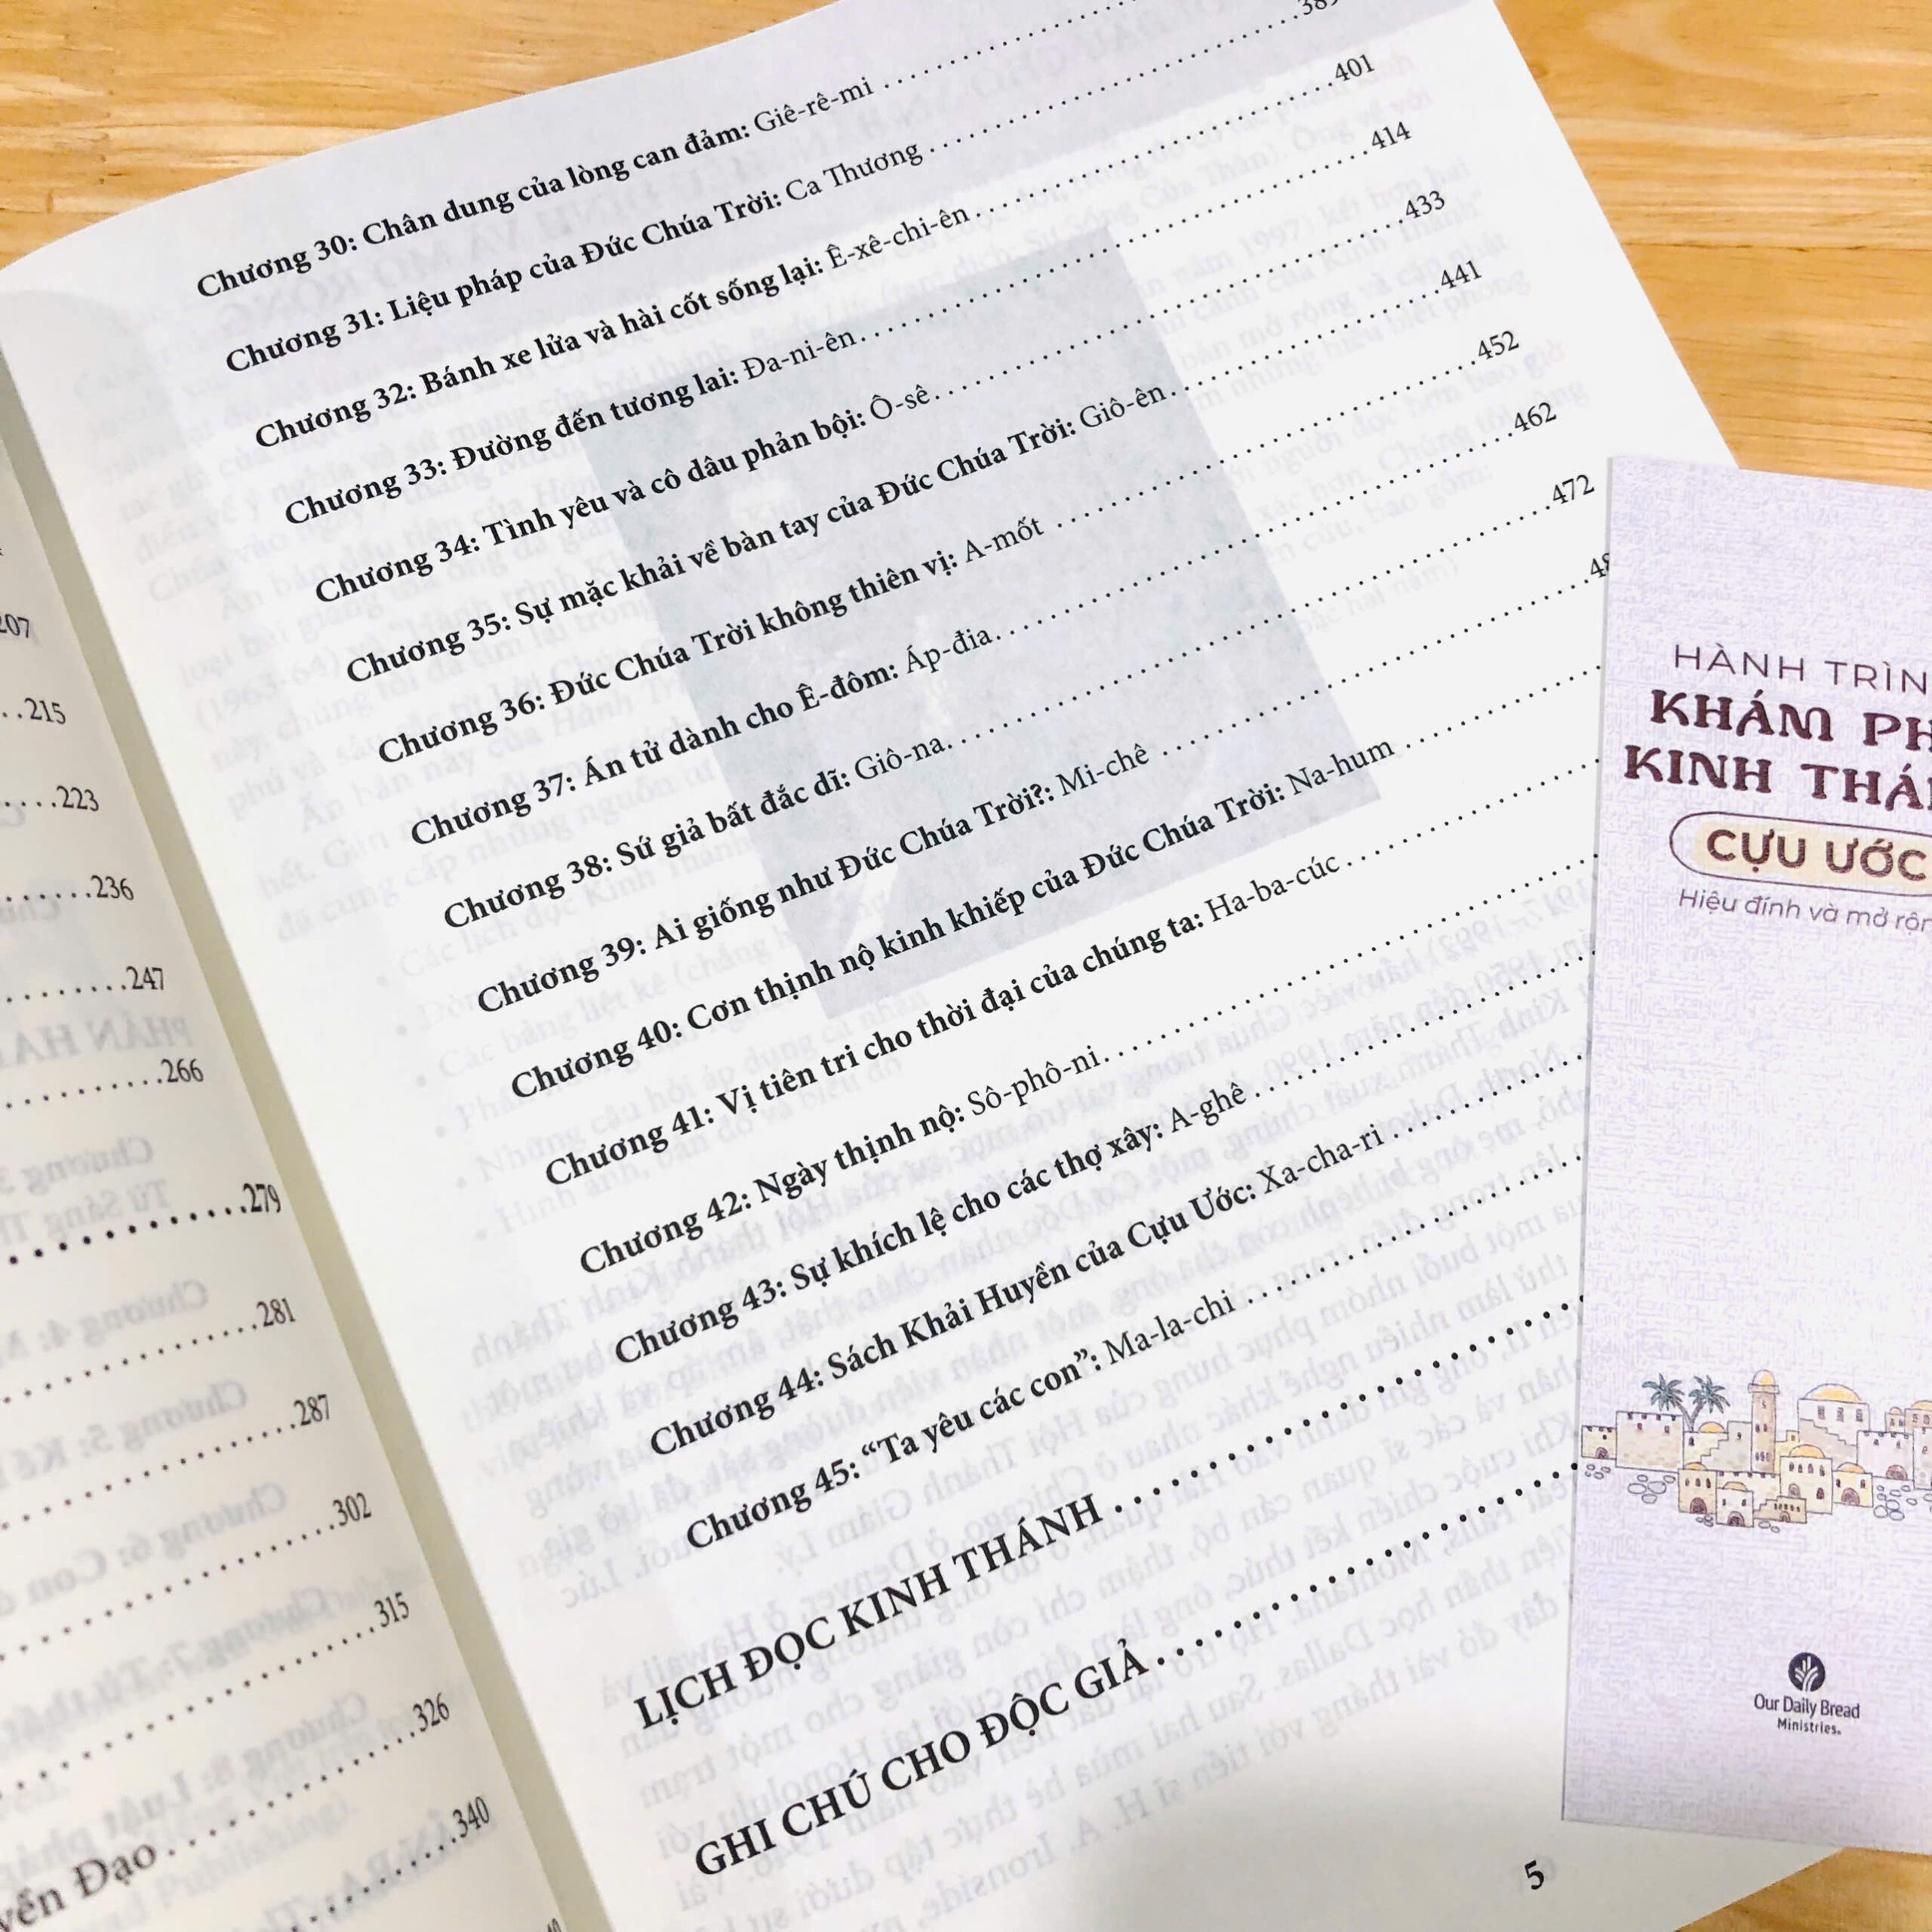 207
215
223
236
247
266
279
281
287
302
315
326
Đạo
340
Chương 30: Chân dung của lòng can đảm: Giê-rê-mi
Chương 31: Liệu pháp của Đức Chúa Trời: Ca Thương
Chương 32: Bánh xe lửa và hài cốt sống lại: Ê-xê-chi-ên 401
Chương 33: Đường đến tương lai: Đa-ni-ên 414
Chương 34: Tình yêu và cô dâu phản bội: Ô-sê 433
Chương 35: Sự mặc khải về bàn tay của Đức Chúa Trời: Giô-ên 441
Chương 36: Đức Chúa Trời không thiên vị: A-mốt 452
Chương 37: Án tử dành cho Ê-đôm: Áp-đia 462
Chương 38: Sứ giả bất đắc dĩ: Giô-na 472
Chương 39: Ai giống như Đức Chúa Trời?: Mi-chê
Chương 40: Cơn thịnh nộ kinh khiếp của Đức Chúa Trời: Na-hum
Chương 41: Vị tiên tri cho thời đại của chúng ta: Ha-ba-cúc
Chương 42: Ngày thịnh nộ: Sô-phô-ni
Chương 43: Sự khích lệ cho các thợ xây: A-ghê
Chương 44: Sách Khải Huyền của Cựu Ước: Xa-cha-ri
Chương 45: “Ta yêu các con”: Ma-la-chi
LỊCH ĐỌC KINH THÁNH
GHI CHÚ CHO ĐỘC GIẢ
5
HÀNH TRÌN
KHÁM PH
KINH THÁ
CỰU ƯỚC
Hiệu đính và mở rộn
Our Daily Bread
Ministries